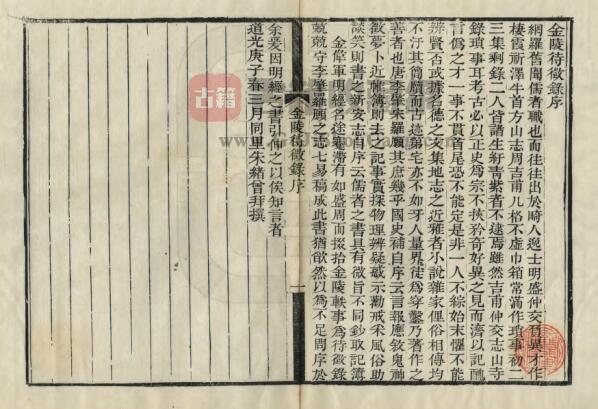 金陵待徵錄序
網羅舊聞儒者職也而往往出於畸人逸士明盛仲交負異才作
棲霞祈澤牛首方山志周吉甫几格不虛巾箱常滿作瑣事初二
三集剩錄二人皆諸生紆青紫者不逮焉雖然吉甫仲交志山寺
錄瑣事耳考古必以正史為宗不挾矜奇好異之見而濟以記醜
言偽之才一事不貫首尾恐不能定是非一人不綜始末懼不能
辨賢否或據名德之文集地志之近雅者小說雜家俚俗相傳均
不汙其簡牘而古蹟第宅亦不如牙人量界徒為穿鑿乃著作之
善者也唐李肇宋羅願其庶幾乎國史補自序云言報應敘鬼神
徵夢卜近帷簿則去之記事實探物理辨疑惑示勸戒采風俗助
談笑則書之新安志自序云儒者之書具有微旨不同鈔取記簿
金偉軍明經名途艱滯有如盛周而掇拾金陵軼事為待徵錄
兢兢守李肇羅願之志七易稿成此書猶欿然以為不足問序於
金陵待徵錄序
一
余爰因明經之書引伸之以俟知言者
道光庚子春三月同里朱緒曾拜撰
古籍